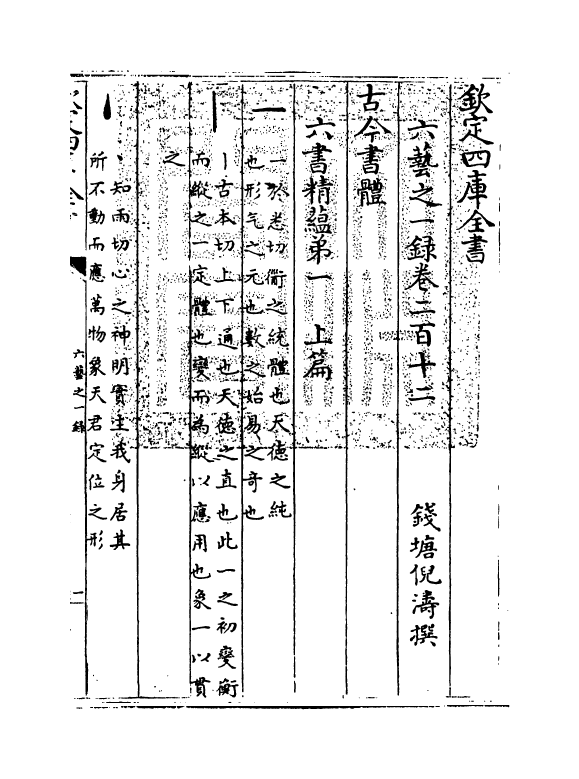 欽定四庫全書
六藝之一録卷二百十二
錢塘倪濤撰
古今書體
六書精蘊第一　上篇
一
一於悉切衢之統體也天德之純
也形气之元也數之始易之奇也
丨
丨古本切上下通也天德之直也此一之初變衡
而縱之一定體也變而為縱以應用也象一以貫
之
丶
丶知雨切心之神明實主我身居其
所不動而應萬物象天君定位之形
六藝之一録